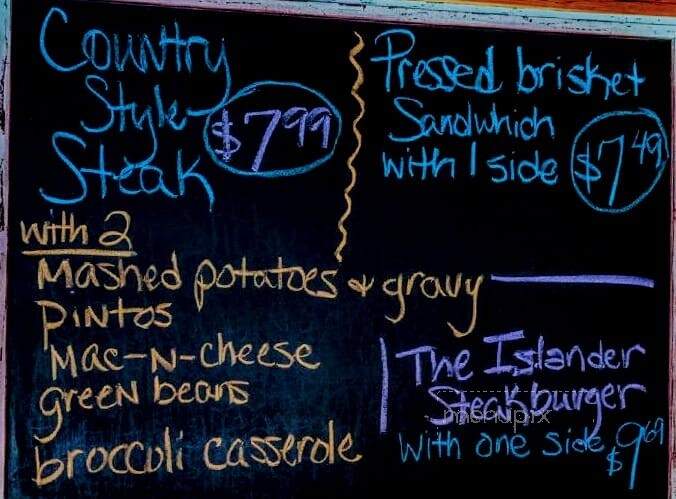 Country
Style
Steak
$7.99
with 2
Mashed potatoes & gravy
pintos
Mac-N-cheese
green beans
broccoli casserole
Pressed brisket
Sandwhich
with 1 side
$7.49
The Islander
Steakburger
with one side $9.69
menupix